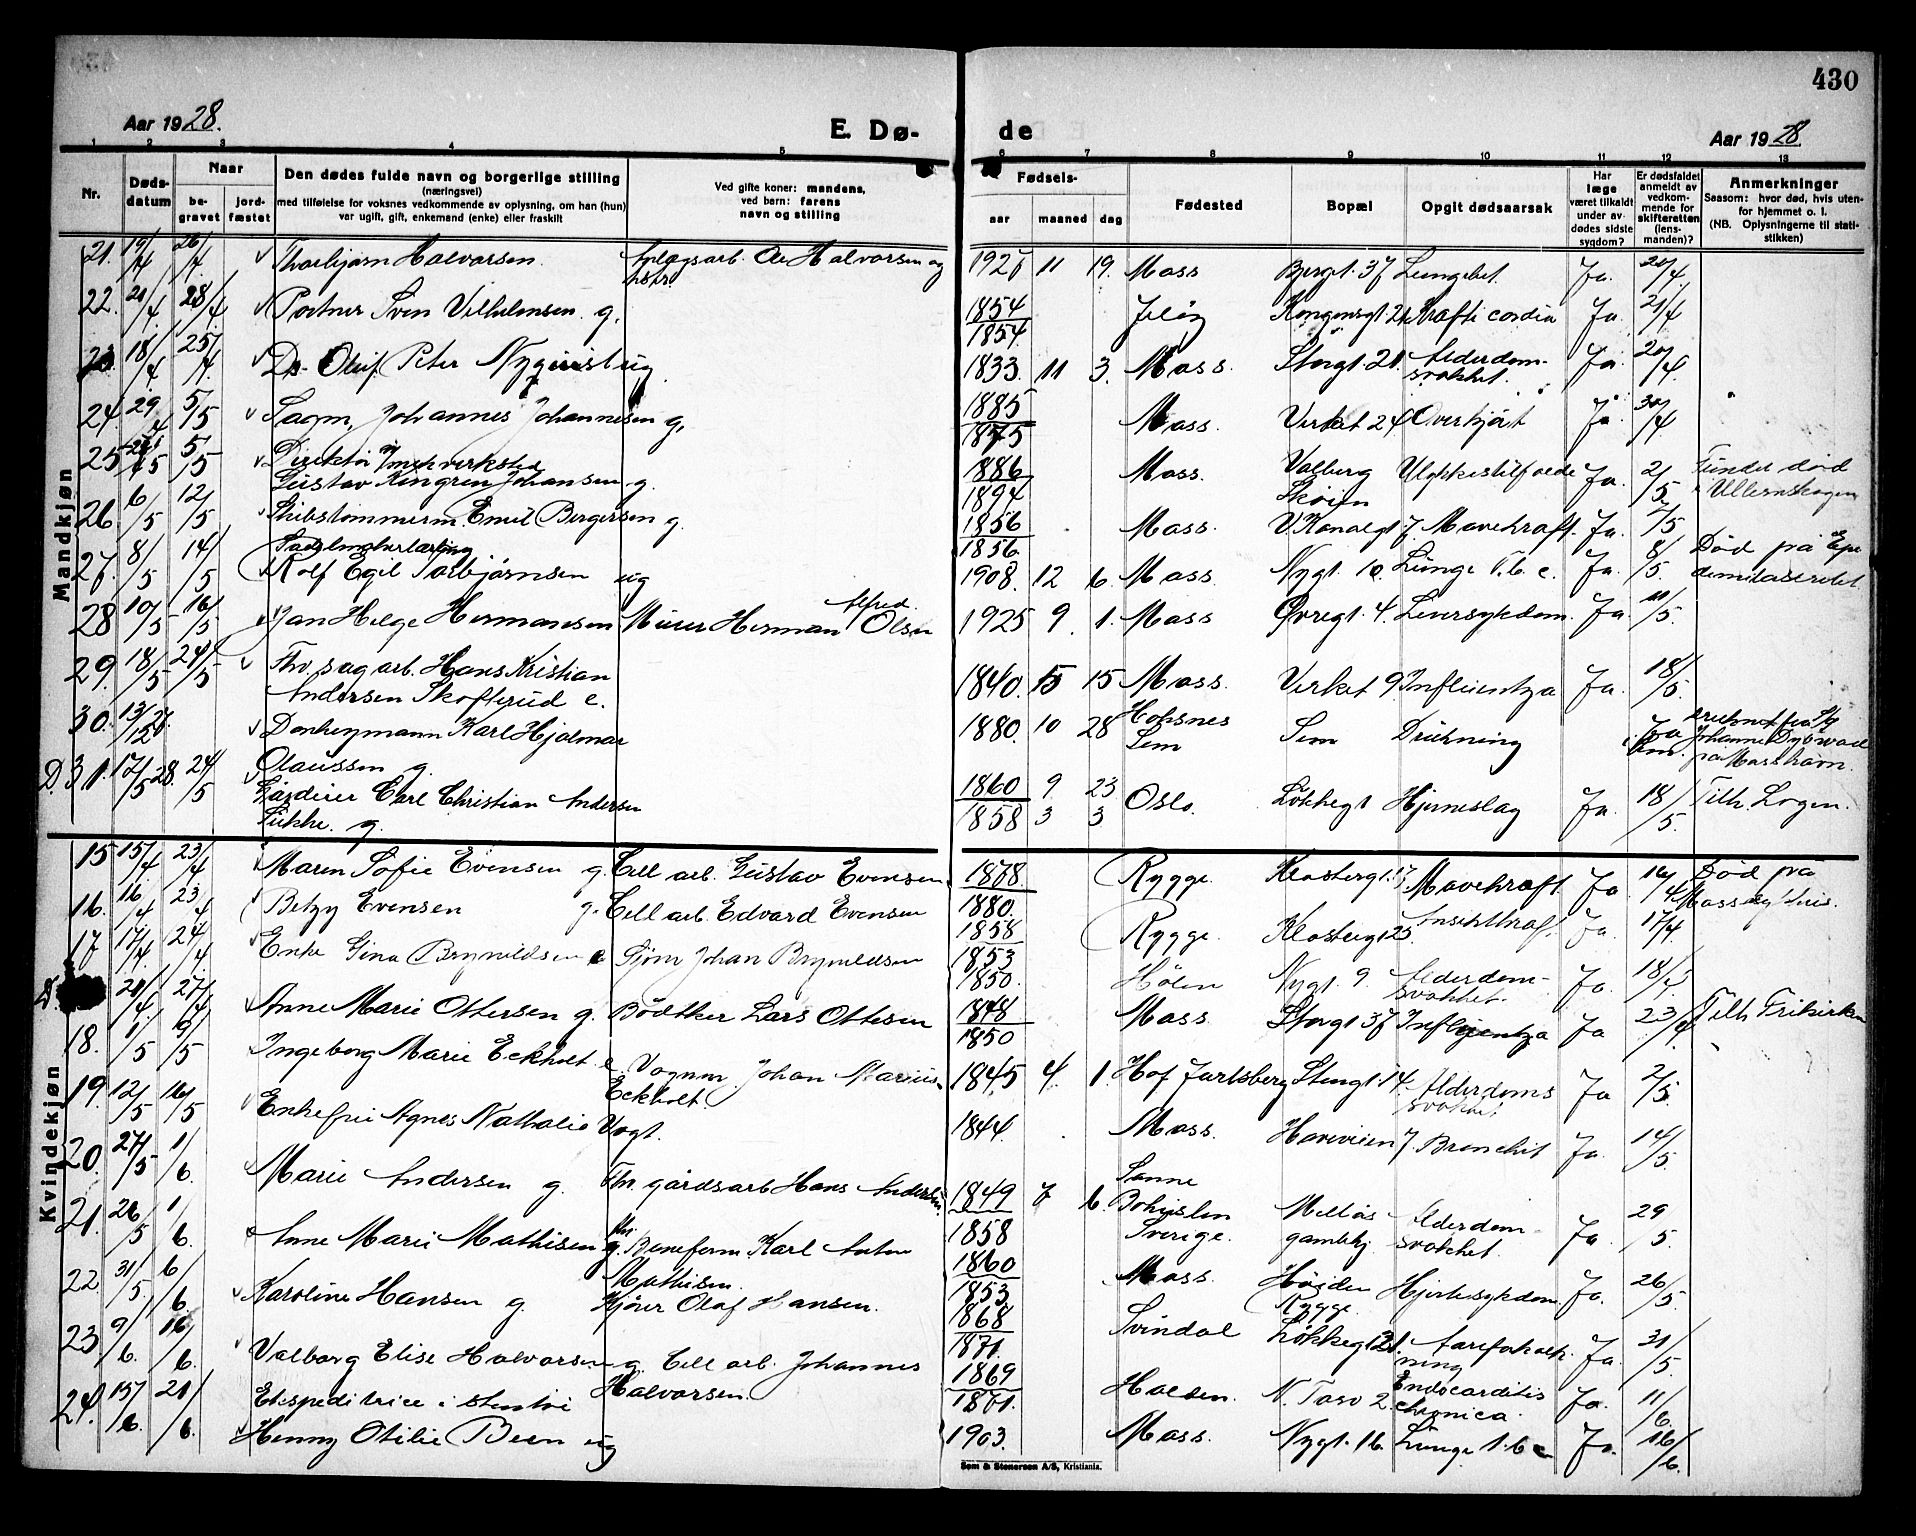 430
Aar 1928.
E. Dø-
de
Aar 1928.
1 2 3 4 5 6 7 8 9 10 11 12 13
Nr.
Døds-
datum
Naar
be-
gravet
jord-
fæstet
Den dødes fulde navn og borgerlige stilling
(næringsvei)
med tilføielse for voksnes vedkommende av oplysning, om han (hun)
var ugift, gift, enkemand (enke) eller fraskilt
Ved gifte koner: mandens,
ved barn: farens
navn og stilling
Fødsels-
aar maaned dag
Fødested
Bopæl
Opgit dødsaarsak
Har
læge
været tilkaldt
under av-
dødes sidste
sygdom?
Er dødsfaldet
anmeldt av
vedkom-
mende for
skifteretten
(lens-
manden)?
Anmerkninger
Saasom: hvor død, hvis uten-
for hjemmet o. l.
(NB. Oplysningerne til stati-
stikken)
Mandkjøn
21. 19/4 26/4 Thorbjørn Halvorsen Ole Halvorsen og hstr. 1927 11 19. Moss Bergt. 37 Lungebet. Ja. 20/4.
22. 21/4 28/4 Portner Sven Vilhelmsen g. 1854 1854 Jeløy Kongensgt 21 Ja 21/4
23 18/4 25/4 Oluf Peter ug 1833. 11 3. Moss. Storgt. 21. Alderdom-
svakhet. Ja. 20/4
24. 29/4 5/5 Sagm. Johannes Johannesen g. 1885 1875 Moss. Verket 24 Overkjørt Ja. 30/4
25 5/5 Direktør mek verksted
Gustav Johansen g. 1886 1894 Moss. Valberg
Skøien Ulykkestilfælde Ja. 2/5 Fundet død
i Ullernskogen
26. 6/5 12/5 Skibstømmerm. Emil Bergersen g. 1856 1856. Moss. V. Kanalgt 7. Mavekræft. Ja. 7/5
27. 8/5 14/5 Sadelmakerlærling
Rolf Egil Torbjørnsen ug 1908. 12 6. Moss Nygt. 10. Lunge T.b.c. Ja 8/5. Død på Epi-
demilasarettet.
28 10/5 16/5 Jan Helge Hermansen Murer Herman Alfred Olsen 1925 9. 1. Moss Øvregt. 4. Leversykdom. Ja. 11/5.
29. 18/5 24/5 Thv. sagarb. Hans Kristian
Andersen Skofterud e. 1840. 5 15 Moss. Verket 9 Influentza Ja. 18/5.
30. 13/12 27. Donkeymann Karl Hjalmar
Olaussen g. 1880. 10 28 Sem Sem Drukning Johanne Dybwad
på Moss havn.
D. 31. 17/5 28. 24/5 Garderer Carl Christian Andersen
g. 1860 1858 9 3 23 3 Oslo. Løkkegt Hjerneslag Ja. 18/5. Tilh. Logen.
Kvindekjøn
15 15/4 23/4 Maren Sofie Evensen g. Cell arb. Gustav Evensen 1878 1880. Rygge. Klostergt. 17 Mavekræft. Ja 16/4 Død på
Moss sykehus.
16. 16/4 23/4 Betzy Evensen g. Cell arb. Edvard Evensen 1858 1853 Rygge. Klostergt 25. Ja 17/4.
17 17/4. 24/4 Enke Gina Brynildsen e Sjøm Johan Brynildsen 1850. Hølen Nygt. 9. Alderdom-
svakhet. Ja. 18/4
D. 21/4. 27/4 Anne Marie Ottersen g. Bødtker Lars Ottesen 1848 1850 Moss. Storgt 37 Influentza Ja 23/4 Tilh Frikirken
18. 1/5 9/5 Ingeborg Marie Eckholt e. Vognm. Johan Marius
Eckholt. 1845 4. 1. Hof Jarlsberg Storgt. 14. Alderdoms
svakhet Ja 2/5.
19. 12/5 16/5 Enkefru Agnes Nathalie Vogt. 1844. Moss. Haveveien 7. Bronchit Ja. 14/5
20. 27/5 1/6. Marie Andersen g. Thv. gårdsarb Hans Andersen 1849 1858 7 6. Sanne
Bohuslen
Sverige. Melløs
gamlehj. Alderdom-
svakhet. Ja. 29/5.
21. 26/5 1/6. Anne Marie Mathisen g. Karl Anton
Mathisen. 1860 1853 Moss. Høiden
Rygge. Hjertesykdom Ja. 26/5.
22 31/5. 6/6. Karoline Hansen g. Kjører Olaf Hansen. 1868 1871. Svindal Løkkegt 21. Aareforkalk-
ning Ja. 31/5
23 9/6. 16/6. Valborg Elise Halvorsen g. Cell arb. Johannes
Halvorsen. 1869 1871. Halden. Endocarditis
chronica. Ja. 11/6.
24. 15/6. 21/6. Ekspeditrice i
Henny Otilie Been ug 1903. Moss. Nygt. 16. Lunge t.b.c Ja. 16/6.
Sem & Stenersen A/S, Kristiania.